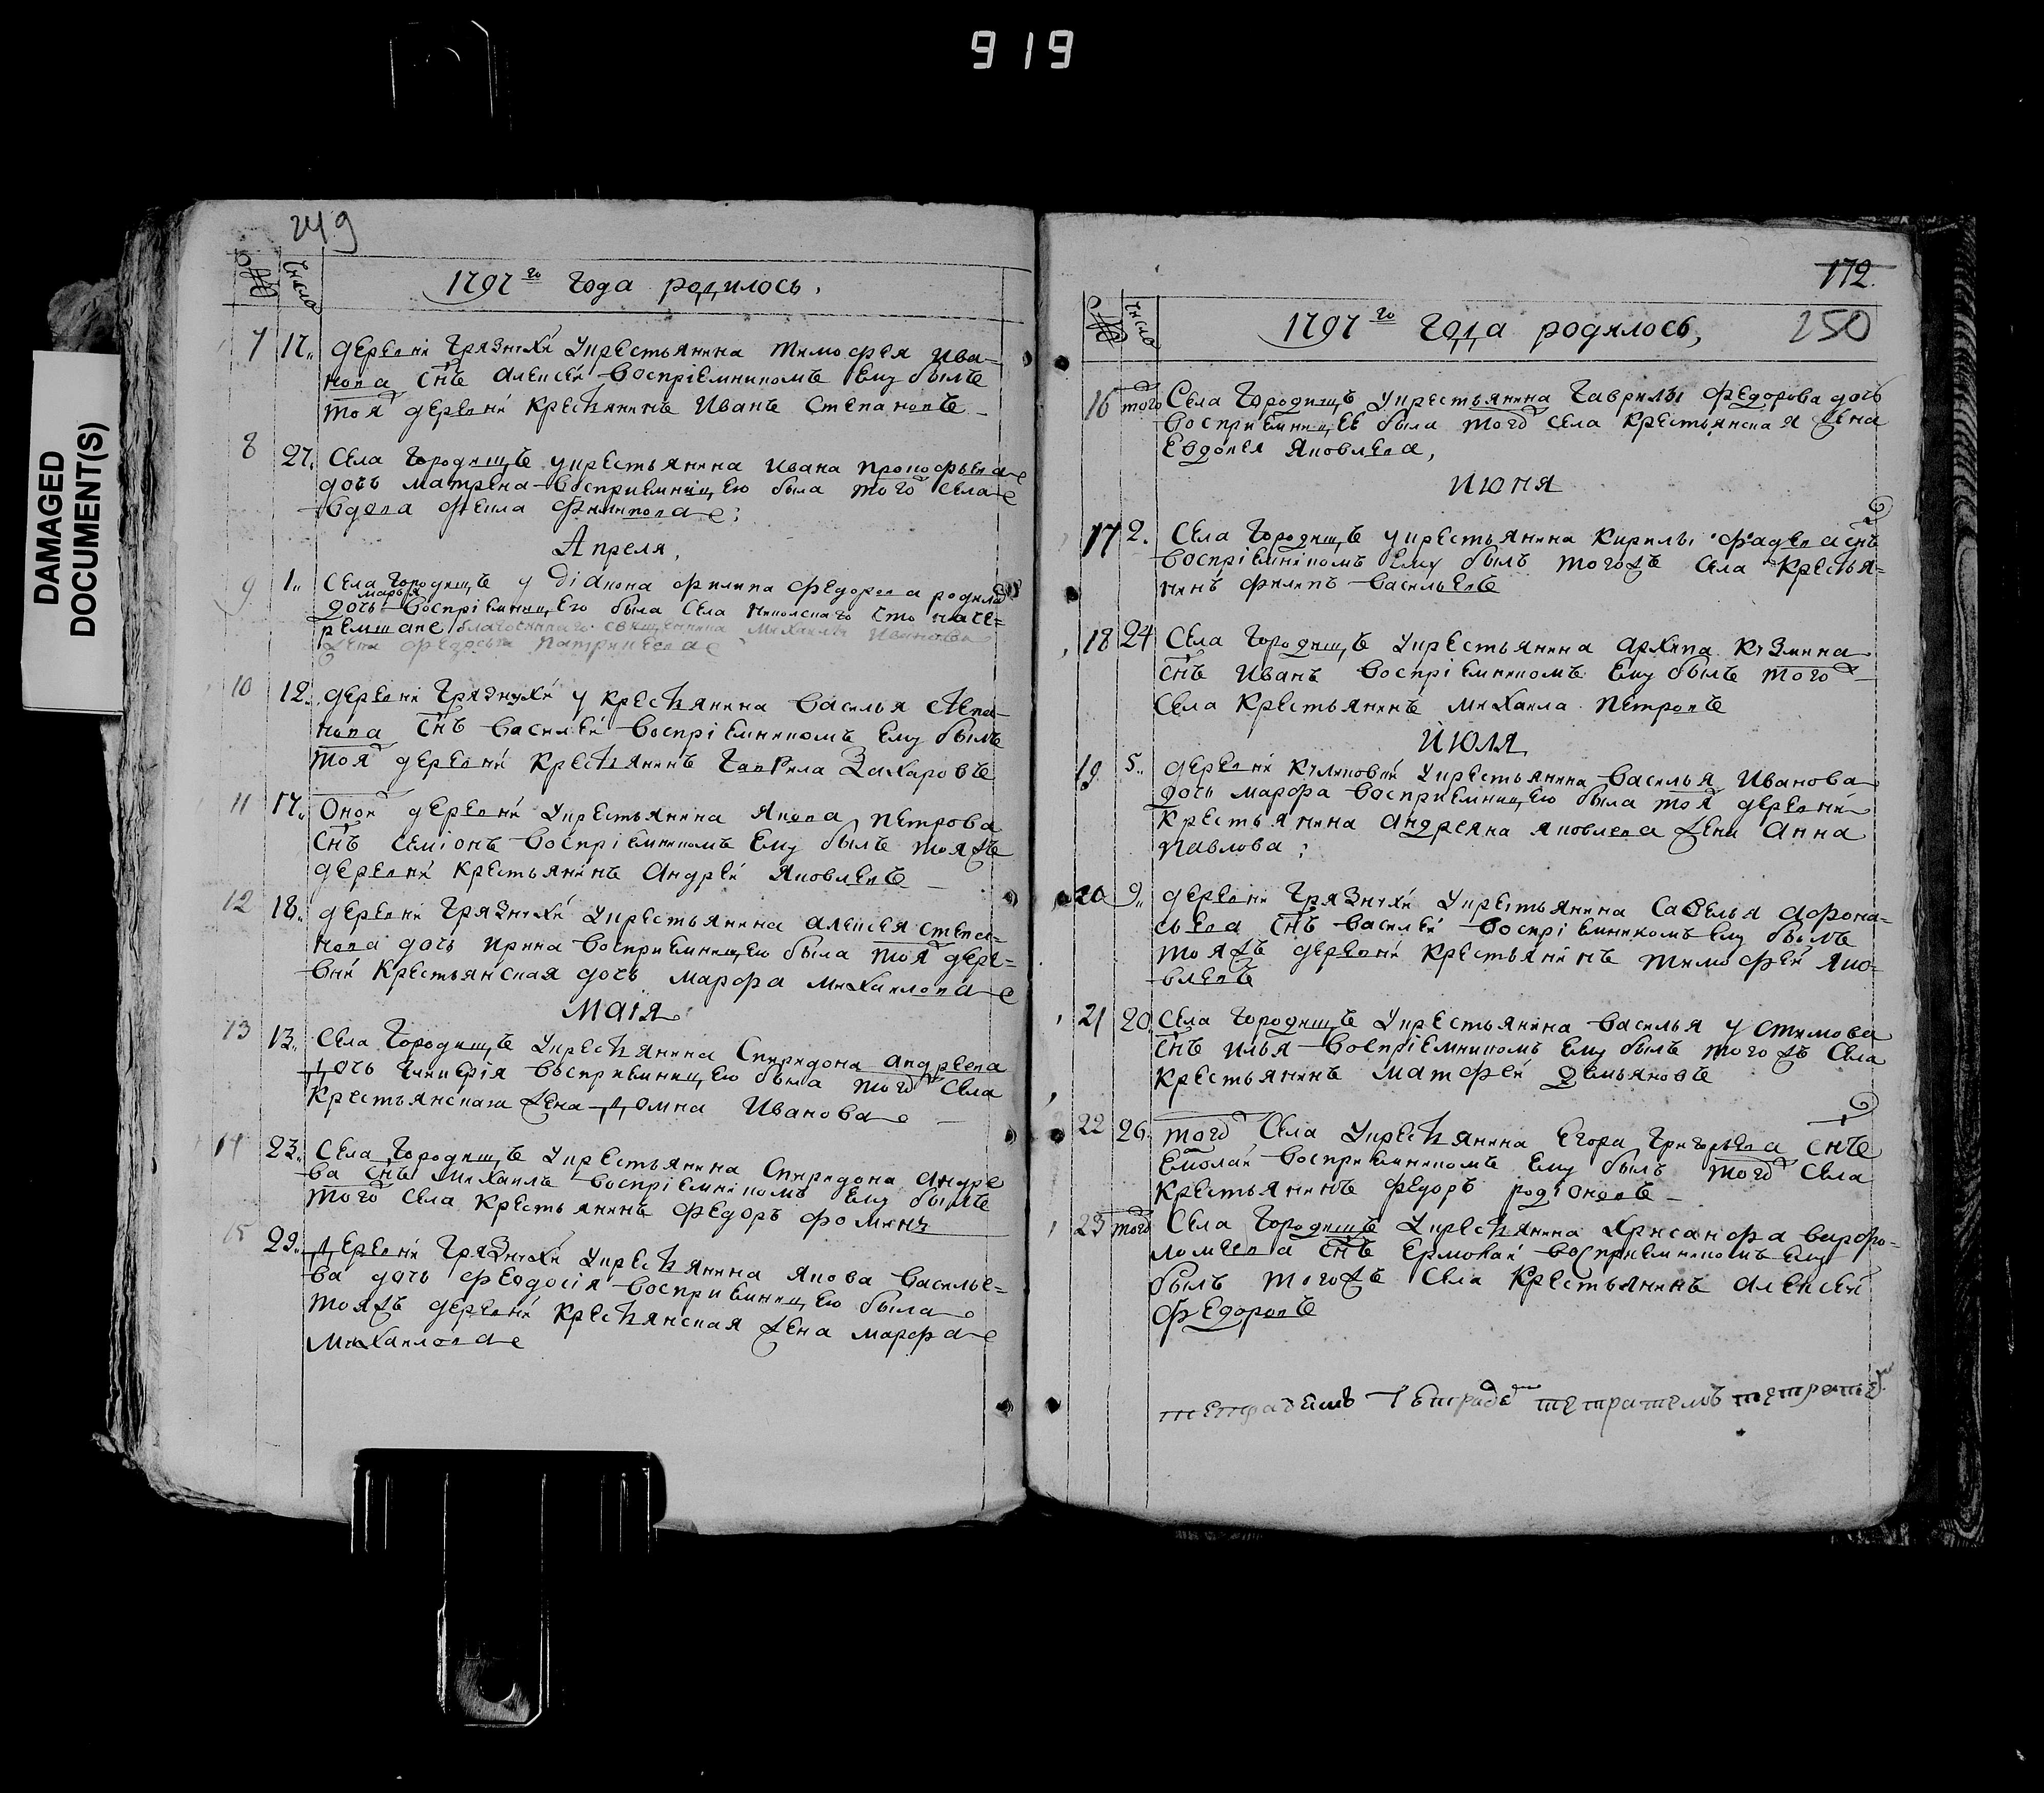 919
DAMAGED
DOCUMENT(S)
249
№
числа
1797го года родилось.
7 17. деревни Грязнухи у крестьянина Тимофея Ива-
нова снъ Алексей восприемникомъ ему былъ
тоя деревни крестьянинъ Иванъ Степановъ
8 27. Села Городищъ у крестьянина Ивана Прокофьева
дочь Матрена восприемницею была того села
вдова Фекла Филипова
Апреля,
9 1. Села Городищъ у діакона Филипа Федорова родилась
дочь Марья восприемницею была села Никольского что на Че-
ремшане благочиннаго священника Михаилы Иванова
жена Федосья
10 12. деревни Грязнухи у крестьянина Василья Степа-
нова снъ Василей восприемникомъ ему былъ
тоя деревни крестьянинъ Гаврила Захаровъ
11 17. Оной деревни у крестьянина Якова Петрова
снъ Семіонъ восприемникомъ ему былъ тояжъ
деревни крестьянинъ Андрей Яковлевъ
12 18. деревни Грязнухи у крестьянина Алексея Степа-
нова дочь Ирина восприемницею была тоя дере-
вни крестьянская дочь Марфа Михаилова
Маія
13 13. Села Городищъ у крестьянина Спиридона Андреева
дочь Гликерія восприемницею была того села
крестьянская жена Домна Иванова
14 23. Села Городищъ у крестьянина Спиридона Андре
ва снъ Михаилъ восприемникомъ ему былъ
того села крестьянинъ Федоръ Фоминъ
15 29. Деревни Грязнухи у крестьянина Якова Василье-
ва дочь Феодосія восприемницею была
тояжъ деревни крестьянская жена Марфа
Михаилова
172.
250
№
число
1797го года родилось,
16 того Села Городищъ у крестьянина Гаврилы Федорова дочь
восприемницею была того села крестьянская жена
Евдокея Яковлева,
Июня
17 2. Села Городищъ у крестьянина Кирилы Фадеева снъ
восприемникомъ ему былъ тогожъ села крестья-
нинъ Филипъ Васильевъ
18 24 Села Городищъ у крестьянина Архипа Кузмина
снъ Иванъ восприемникомъ ему былъ того
села крестьянинъ Михаила Петровъ
Июля
19 5. деревни Куликовки у крестьянина Василья Иванова
дочь Марфа восприемницею была тоя деревни
крестьянина Андреяна Яковлева жена Анна
Павлова:
20 9. деревни Грязнухи у крестьянина Савелья Афона-
сьева снъ Василей восприемникомъ ему былъ
тояжъ деревни крестьянинъ Тимофей Яко-
влевъ
21 20. Села Городищъ у крестьянина Василья Устимова
снъ Илья восприемникомъ ему былъ тогожъ села
крестьянинъ Матфей Демьяновъ
22 26. того села у крестьянина Егора Григорьева снъ
Емолай восприемникомъ ему былъ того села
крестьянинъ Федоръ Родіоновъ
23 того Села Городищъ у крестьянина Хрисанфа Варфо-
ломеева снъ Ермолай восприемникомъ ему
былъ тогожъ села крестьянинъ Алексей
Федоровъ